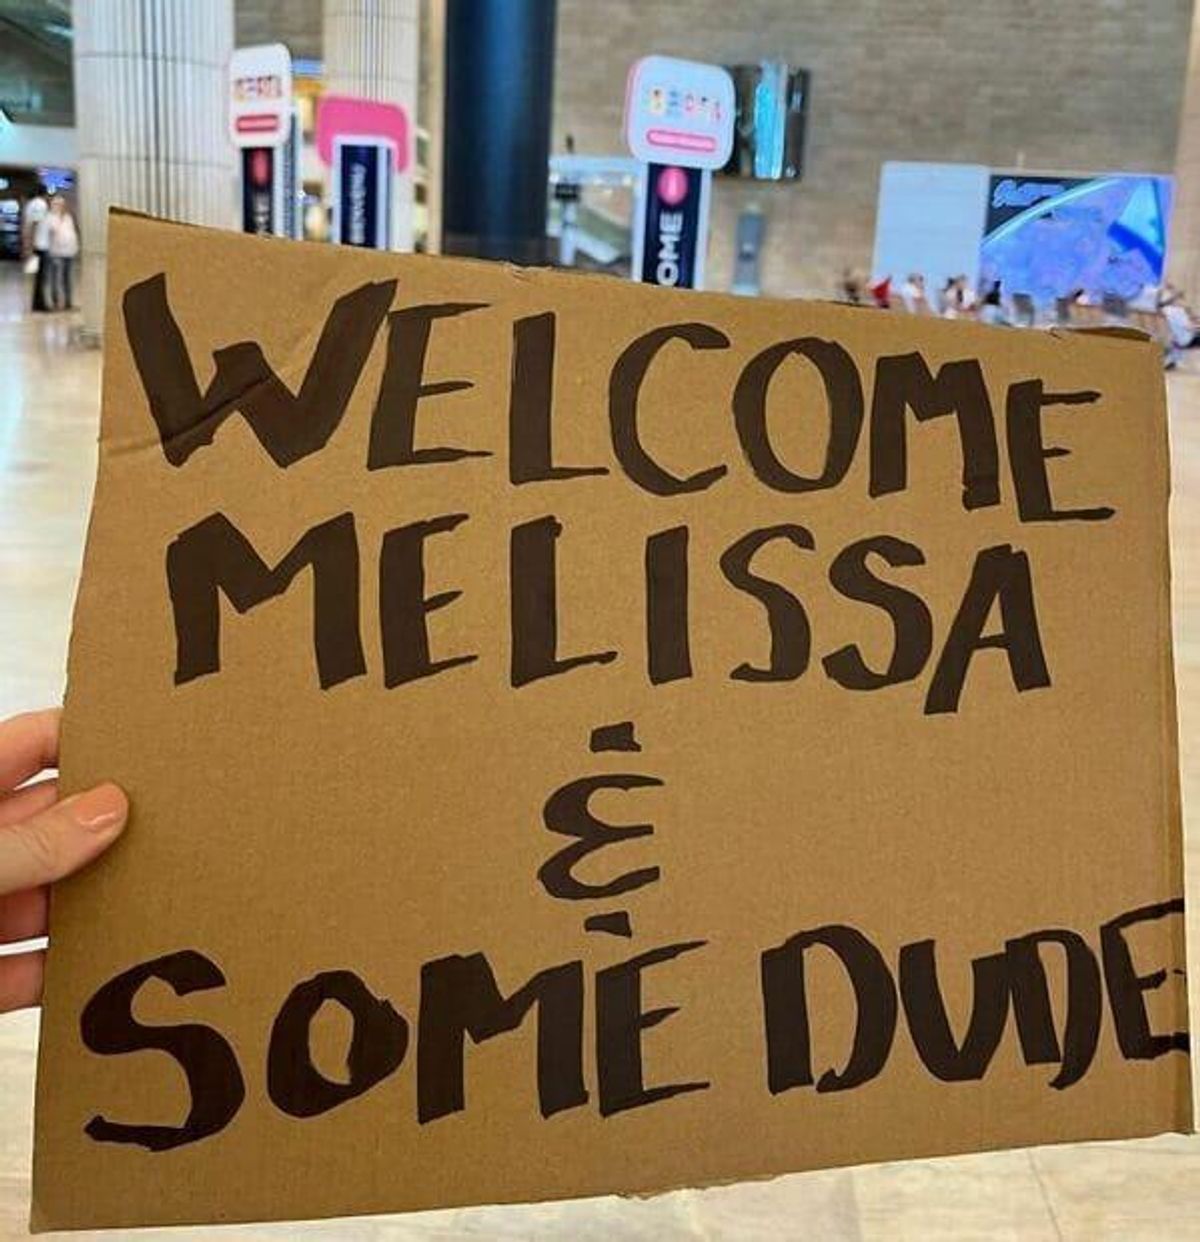 WELCOME
MELISSA
&
SOME DUDE
OME